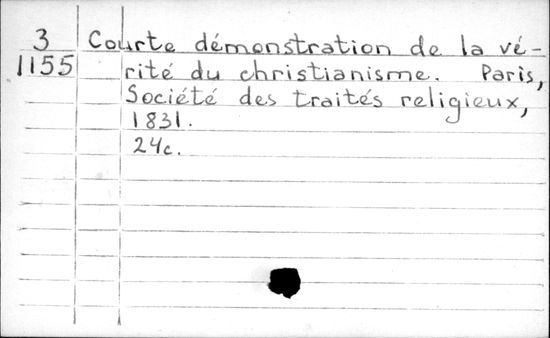 3 Courte démonstration de la vé-
1155 rité du christianisme. Paris,
Société des traités religieux,
1831.
24c.